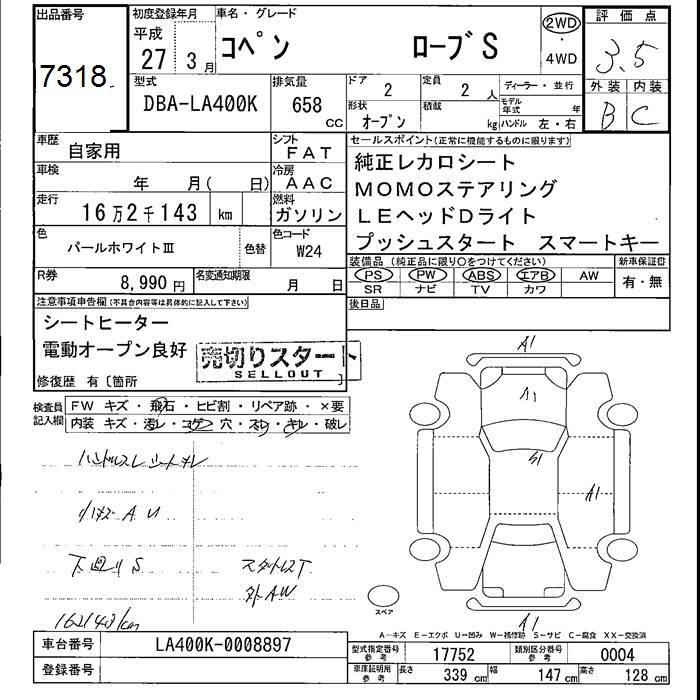 出品番号
7318
初度登録年月
平成
27 3 月
車名・グレード
コペン ローブS
2WD
・
4WD
評価点
3.5
外装 内装
B C
型式
DBA-LA400K
排気量
658
CC
ドア
2
定員
2 人
形状
オープン
積載
kg
ディーラー・並行
モデル年式 年
ハンドル 左・右
車歴
自家用
シフト
FAT
車検
年 月( 日)
冷房
AAC
走行
16万2千143 km
燃料
ガソリン
色
パールホワイトⅢ
色替
色コード
W24
R券
8,990 円
名変通知期限
月 日
セールスポイント(正常に機能するものに限ります)
純正レカロシート
MOMOステアリング
LEヘッドDライト
プッシュスタート スマートキー
装備品 (純正品に限り○をつけてください)
PS PW ABS エアB AW
SR ナビ TV カワ
新車保証書
有・無
後日品
注意事項申告欄(不具合内容等は具体的に記入して下さい)
シートヒーター
電動オープン良好
売切りスタート
SELLOUT
修復歴 有〔箇所 〕
検査員
記入欄
FW キズ・飛石・ヒビ割・リペア跡・×要
内装 キズ・汚レ・コゲ・穴・スレ・キレ・破レ
下回りS
外AW
162143km
A1
A1
S1
A1
A1
スペア
A-キズ E-エクボ U-凹み W-補修跡 S-サビ C-腐食 XX-交換済
車台番号
LA400K-0008897
登録番号
型式指定番号
参考
17752
類別区分番号
参考
0004
車庫証明用
参考
長さ
339 cm
幅
147 cm
高さ
128 cm